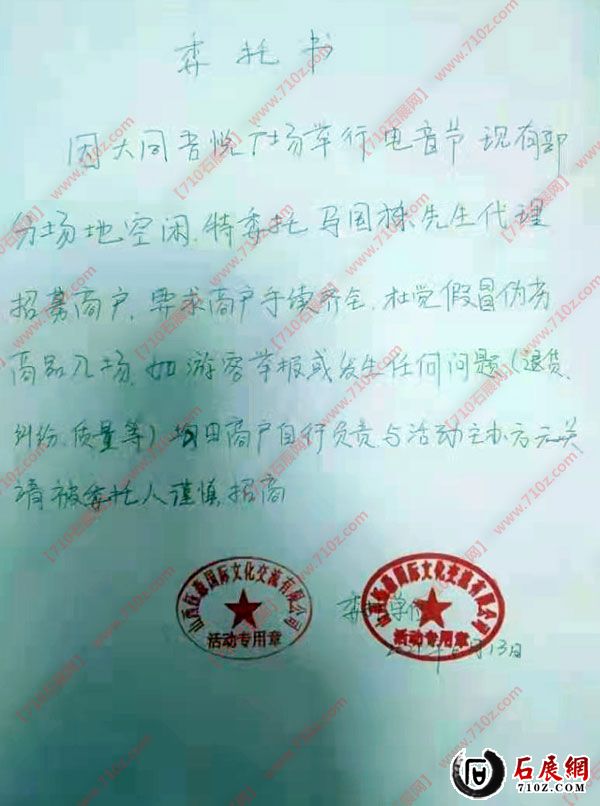 委托书
因大同吾悦广场举行电音节 现有部
分场地空闲.特委托马国栋先生代理
招募商户,要求商户手续齐全,杜觉假冒伪劣
商品入场,如游客举报或发生任何问题(退货.
纠纷.质量等)均由商户自行负责与活动主办方无关
请被委托人谨慎招商
国际文化交流有限公司
活动专用章
国际文化交流有限公司
活动专用章
委 单位
月13日
【710石展网】www.710z.com
石展網
710Z.COM